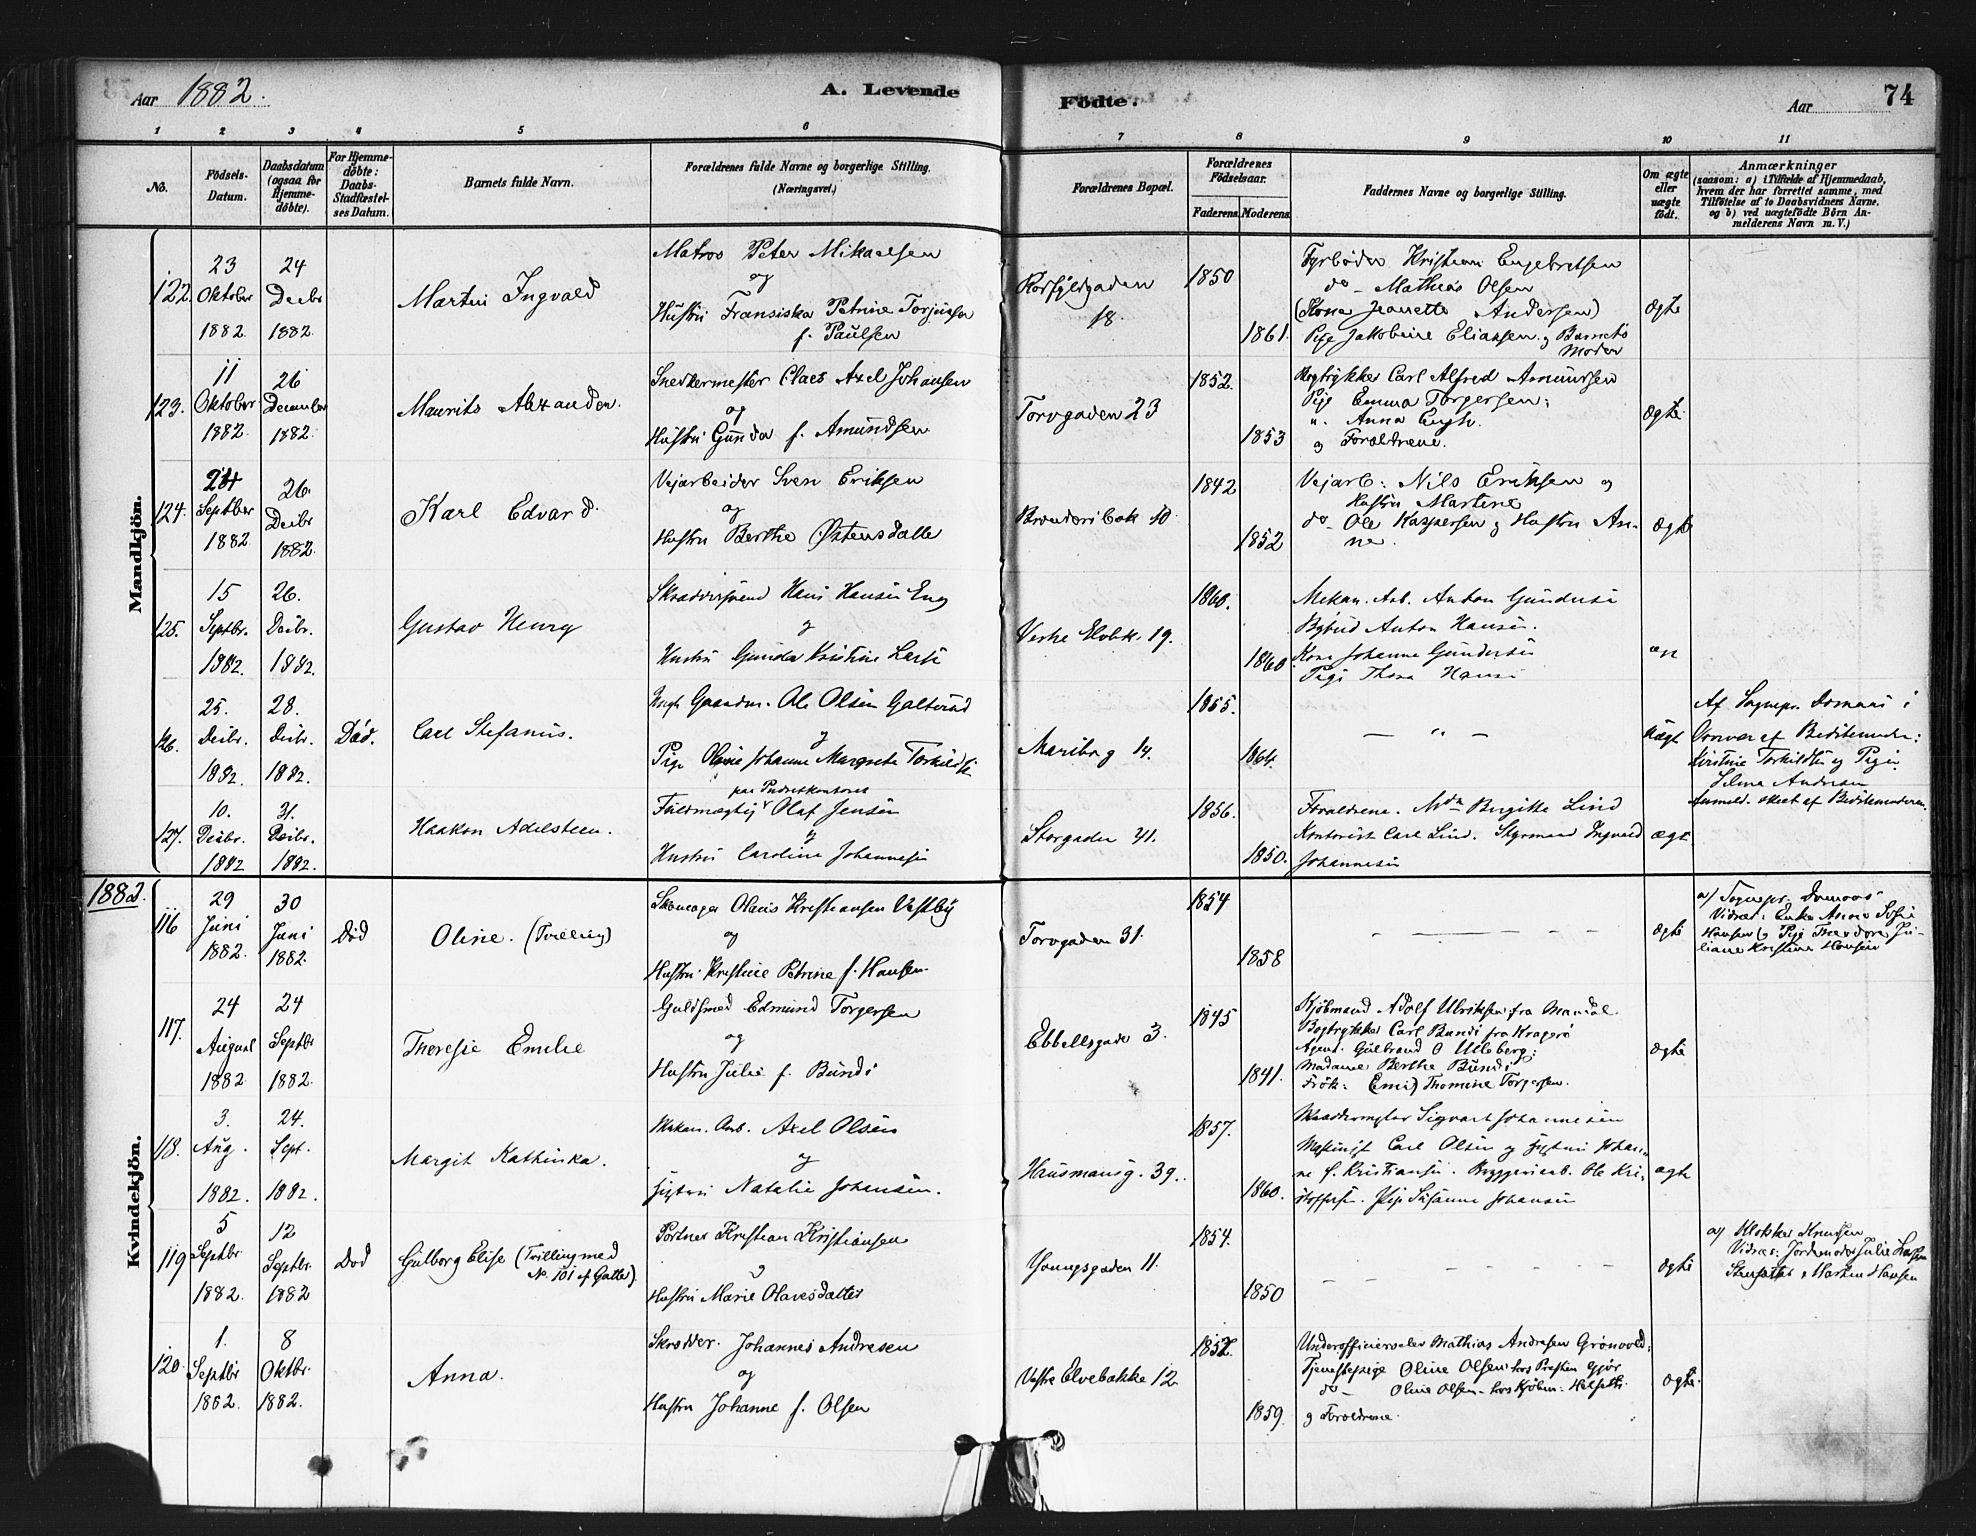 Aar 1882.
A. Levende
Födte.
Aar
74
1 2 3 4 5 6 7 8 9 10 11
No.
Födsels-Datum.
Daabsdatum (ogsaa for Hjemme-döbte).
For Hjemme-döbte: Daabs-Stadfæstel-ses Datum.
Barnets fulde Navn.
Forældrenes fulde Navne og borgerlige Stilling.
(Næringsvei.)
Forældrenes Bopæl.
Forældrenes Födselsaar.
Faderens. Moderens.
Faddernes Navne og borgerlige Stilling.
Om ægte eller uægte födt.
Anmærkninger
(saasom: a) i Tilfælde af Hjemmedaab,
hvem der har forrettet samme, med
Tilföielse af to Daabsvidners Navne.
og b) ved uægtefödte Börn An-
melderens Navn m. V.)
Mandkjön.
122. 23 Oktober 1882 24 Decbr 1882.
Martin Ingvald
Matros Peter Mikaelsen
og
Hustru Fransiska Petrine
f. Paulsen
18.
1850
1861.
Fyrböder Kristian Engebretsen
do - Mathias Olsen
(Kona Jeanette Andersen)
Pige Jakobine Eliassen og Barnets
Moder
ægte
123. 11 Oktober 1882 26 December 1882.
Maurits Alexander.
Snedkermester Claes Axel Johansen
og
Hustru Gunda f. Amundsen
Torvgaden 23
1852.
1853
Bogtrykker Carl Alfred Amundsen
Pige Emma Torgersen:
" Anna Engh.
og Forældrene.
ægte
124. 24 Septber 1882 26. Decbr 1882.
Karl Edvard.
Veiarbeider Sven Eriksen
og
Hustru Berthe Østensdatter
10
1842
1852
Veiarb: Nils Eriksen og
Hustru Martine
do - Ole Kaspersen og Hustru An-
ne.
ægte
125. 15 Septbr. 1882. 26. Decbr. 1882.
Gustav Henry
Skræddersvend Hans Hansen Eng
og
Hustru Gunda Kristine Larsen
Vestre Elvbk. 19.
1860.
1860
Mekan. Arb. Anton Gundersen
Bybud Anton Hansen.
Kone Johanne Gundersen
Pige Thora Hansen
126. 25. Decbr. 1882. 28. Decbr. 1882.
Död.
Carl Stefanus.
Ole Olsen
og
Pige Oline Johanne Margrete Torkildsen
Maribog 14.
1855.
1864.
- " -
Uægte
Af Sognepr. Domaas i
Nærvær af Bedstemoder:
Kristine Torkildsen og Pigen
Anmeld. skeet af Bedstemoderen.
127. 10. Decbr. 1882 31. Decbr. 1882.
Haakon Adelsteen.
Fuldmægtig Olaf Jensen
og
Hustru Caroline Johannesen
Storgaden 41.
1856.
1850.
Forældrene. Birgitte Lind
Kontorist Carl Lind. Styrmand Ingvald
Johannesen
ægte
1882.
Kvindekjön.
116 29 Juni 1882. 30 Juni 1882.
Död
Oline. (Tvilling)
Skomager Olaus Kristiansen Vestby
og
Hustru Kristine Petrine f. Hansen.
Torvgaden 31.
1854
1858
ægte
a) Sognepr. Domaas
Vidner: Enke Anne Sofie
Hansen og Pige Theodora Ju-
liane Kristine Hansen
117. 24 August 1882 24 Septbr 1882.
Theresie Emilie
Guldsmed Edmund Torgersen
og
Hustru Julie f. Bundi
Ebbellsgade 3.
1845
1841.
Kjöbmand Adolf Ulriksen fra Mandal.
Bogtrykker Carl Bundi fra Kragerö
Agent. Gulbrand O Ulleberg:
Madame Berthe Bundi
Frök: Emili Thomine Torgersen.
ægte
118. 3. Aug. 1882. 24. Sept. 1882.
Margit Kathinka.
Mekan. Arb. Axel Olsen
og
Hustru Natalie Johansen.
Hausmansg. 39.
1857.
1860.
Sigvart Johannesen
Maskinist Carl Olsen og Hustru Johan-
ne f. Kristiansen. Bryggeriarb. Ole Kri-
stoffersen. Pige Susanne Johansen
ægte
119 5 Septbr 1882. 12 Septbr. 1882
Död
Gulborg Elise (Tvilling med
No. 101 af Gutter).
Portner Kristian Kristiansen
og
Hustru Marie Olavesdatter
Youngsgaden 11.
1854.
1850
ægte
a) Klokker Knudsen
Vidner: Jordemoder Julie
Martin Hansen
120. 1. Septbr 1882. 8 Oktbr. 1882.
Anna.
Skrædder. Johannes Andresen
og
Hustru Johanne f. Olsen
Vestre Elvebakke 12
1852.
1859.
Underofficierselev Mathias Andresen Grönvold:
Tjenestepige Oline Olsen hos Presten Gjör
do - Oline Olsen - hos Kjöbm: Helseth.
og Forældrene.
ægte.